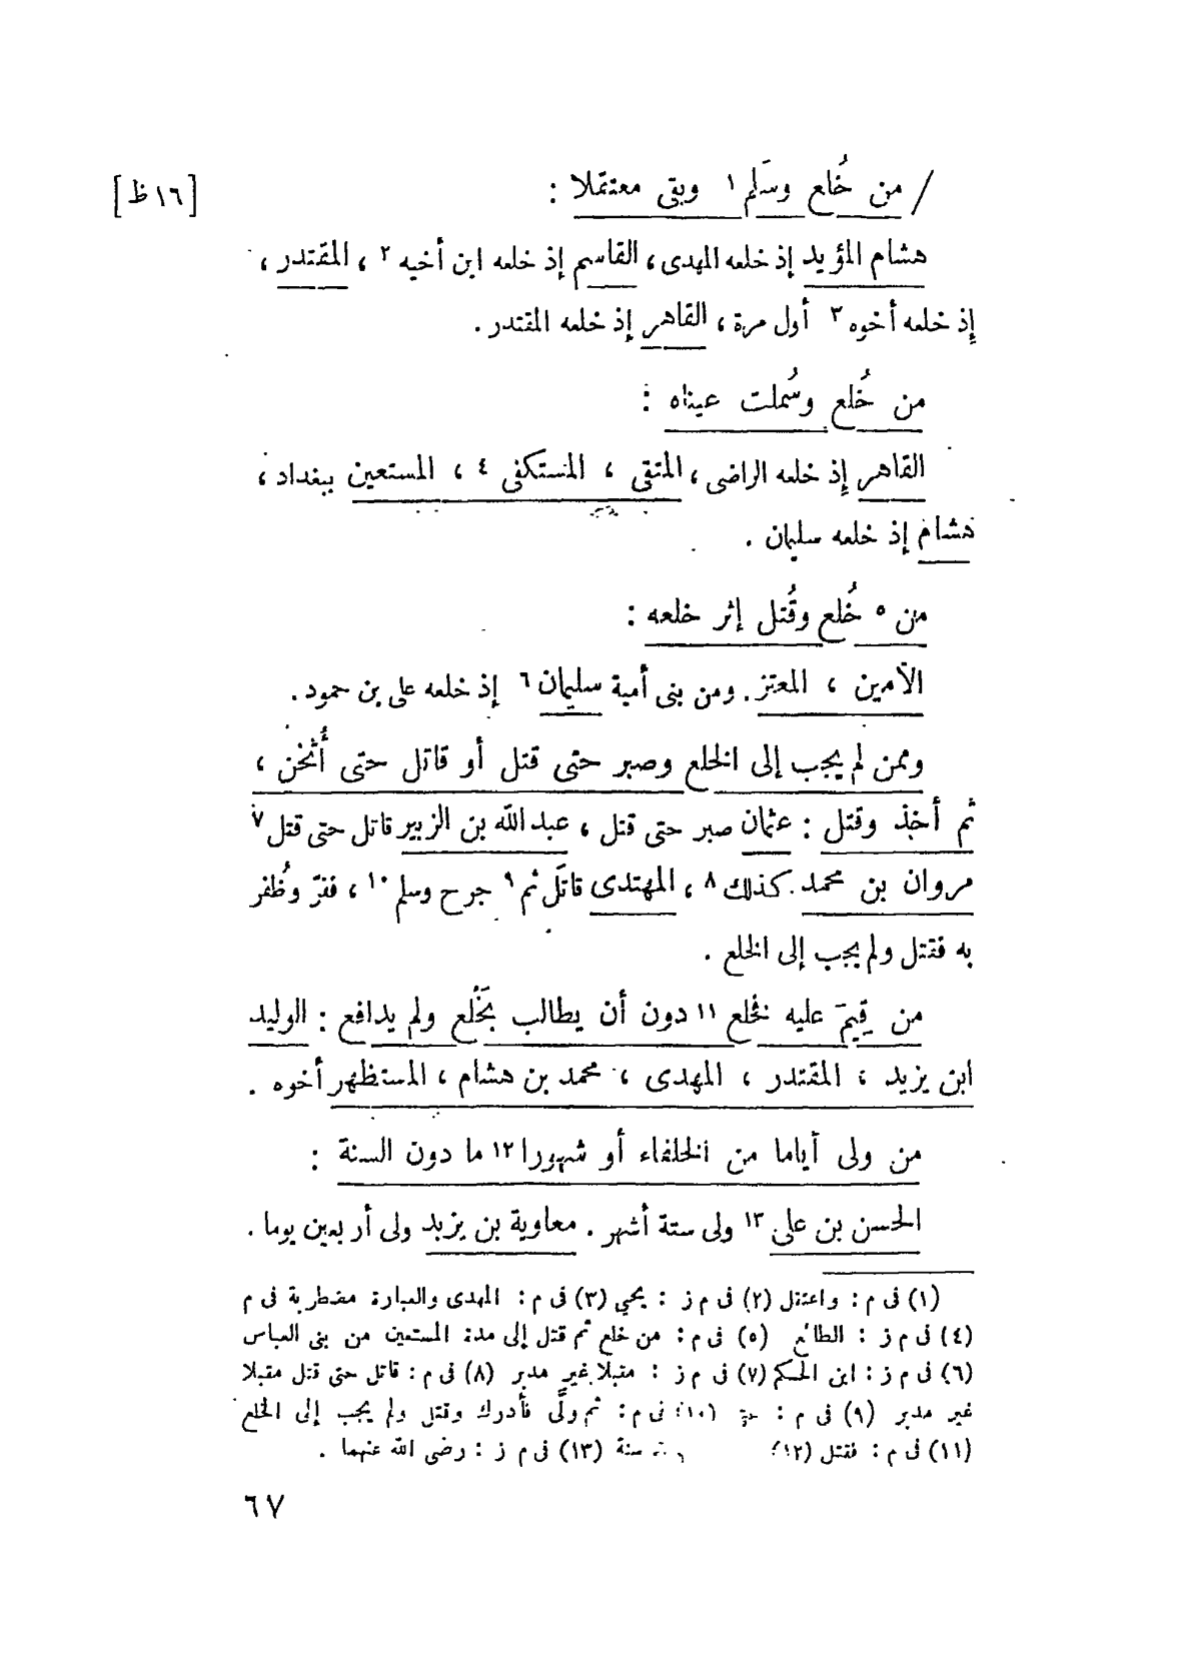 / من خُلع وسَلم ١ وبقى معتقلا :
[١٦ظ]
هشام المؤيد إذ خلعه المهدى ، القاسم إذ خلعه ابن أخيه ٢ ، المقتدر ،
إذ خلعه أخوه ٣ أول مرة ، القاهر إذ خلعه المقتدر .
من خُلع وسُملت عيناه :
القاهر إذ خلعه الراضى ، المتقى ، المستكفى ٤ ، المستعين ببغداد ،
هشام إذ خلعه سليمان .
من ٥ خُلع وقُتل إثر خلعه :
الأمين ، المعتز . ومن بنى أمية سليمان ٦ إذ خلعه على بن حمود .
وممن لم يجب إلى الخلع وصبر حتى قتل أو قاتل حتى أُثخن ،
ثم أخذ وقتل : عثمان صبر حتى قتل ، عبد الله بن الزبير قاتل حتى قتل ٧
مروان بن محمد . كذلك ٨ ، المهتدى قاتَل ثم ٩ جرح وسلم ١٠ ، ففرّ وظُفر
به فقتل ولم يجب إلى الخلع .
من قِيمَ عليه فخلع ١١ دون أن يطالب بَخْلع ولم يدافع : الوليد
ابن يزيد ، المقتدر ، المهدى ، محمد بن هشام ، المستظهر أخوه .
من ولى أياما من الخلفاء أو شهورا ١٢ ما دون السنة :
الحسن بن على ١٣ ولى ستة أشهر . معاوية بن يزيد ولى أربعين يوما .
(١) فى م : واعتقل (٢) فى م ز : يحيي (٣) فى م : المهدى والعبارة مضطربة فى م
(٤) فى م ز : الطائع (٥) فى م : من خلع ثم قتل إلى مدة المستعين من بنى العباس
(٦) فى م ز : ابن الحكم (٧) فى م ز : مقبلا غير مدبر (٨) فى م : قاتل حتى قتل مقبلا
غير مدبر (٩) فى م : (١٠) فى م : ثم ولَّى فأدرك وقتل ولم يجب إلى الخلع
(١١) فى م : فقتل (١٢) سنة (١٣) فى م ز : رضى الله عنهما .
٦٧